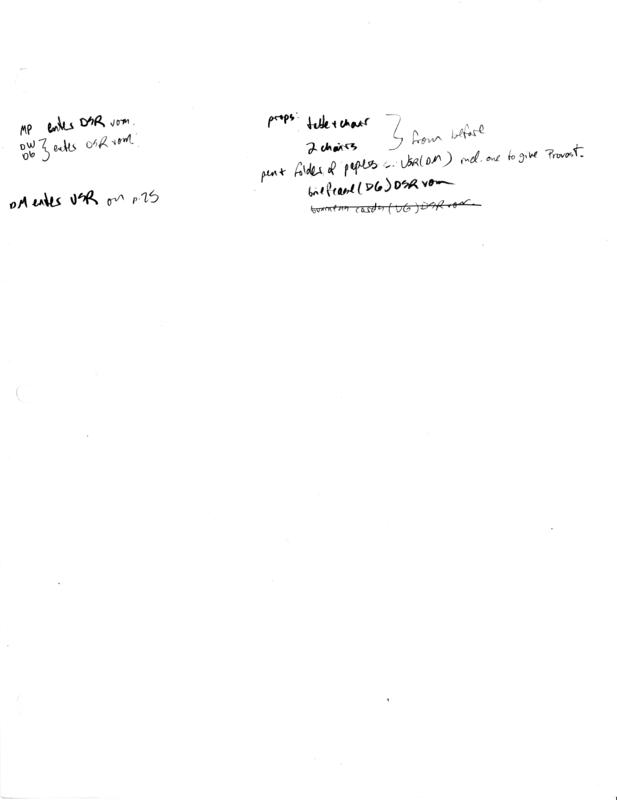 MP enters DSR vom.
DW
DG } enters DSR vom.
DM enters USR on p.25
props: table + chair
2 chairs } from before
pen + folder of papers - USR (DM) incl. one to give Provost.
briefcase (DG) DSR vom
(DG) DSR vom.